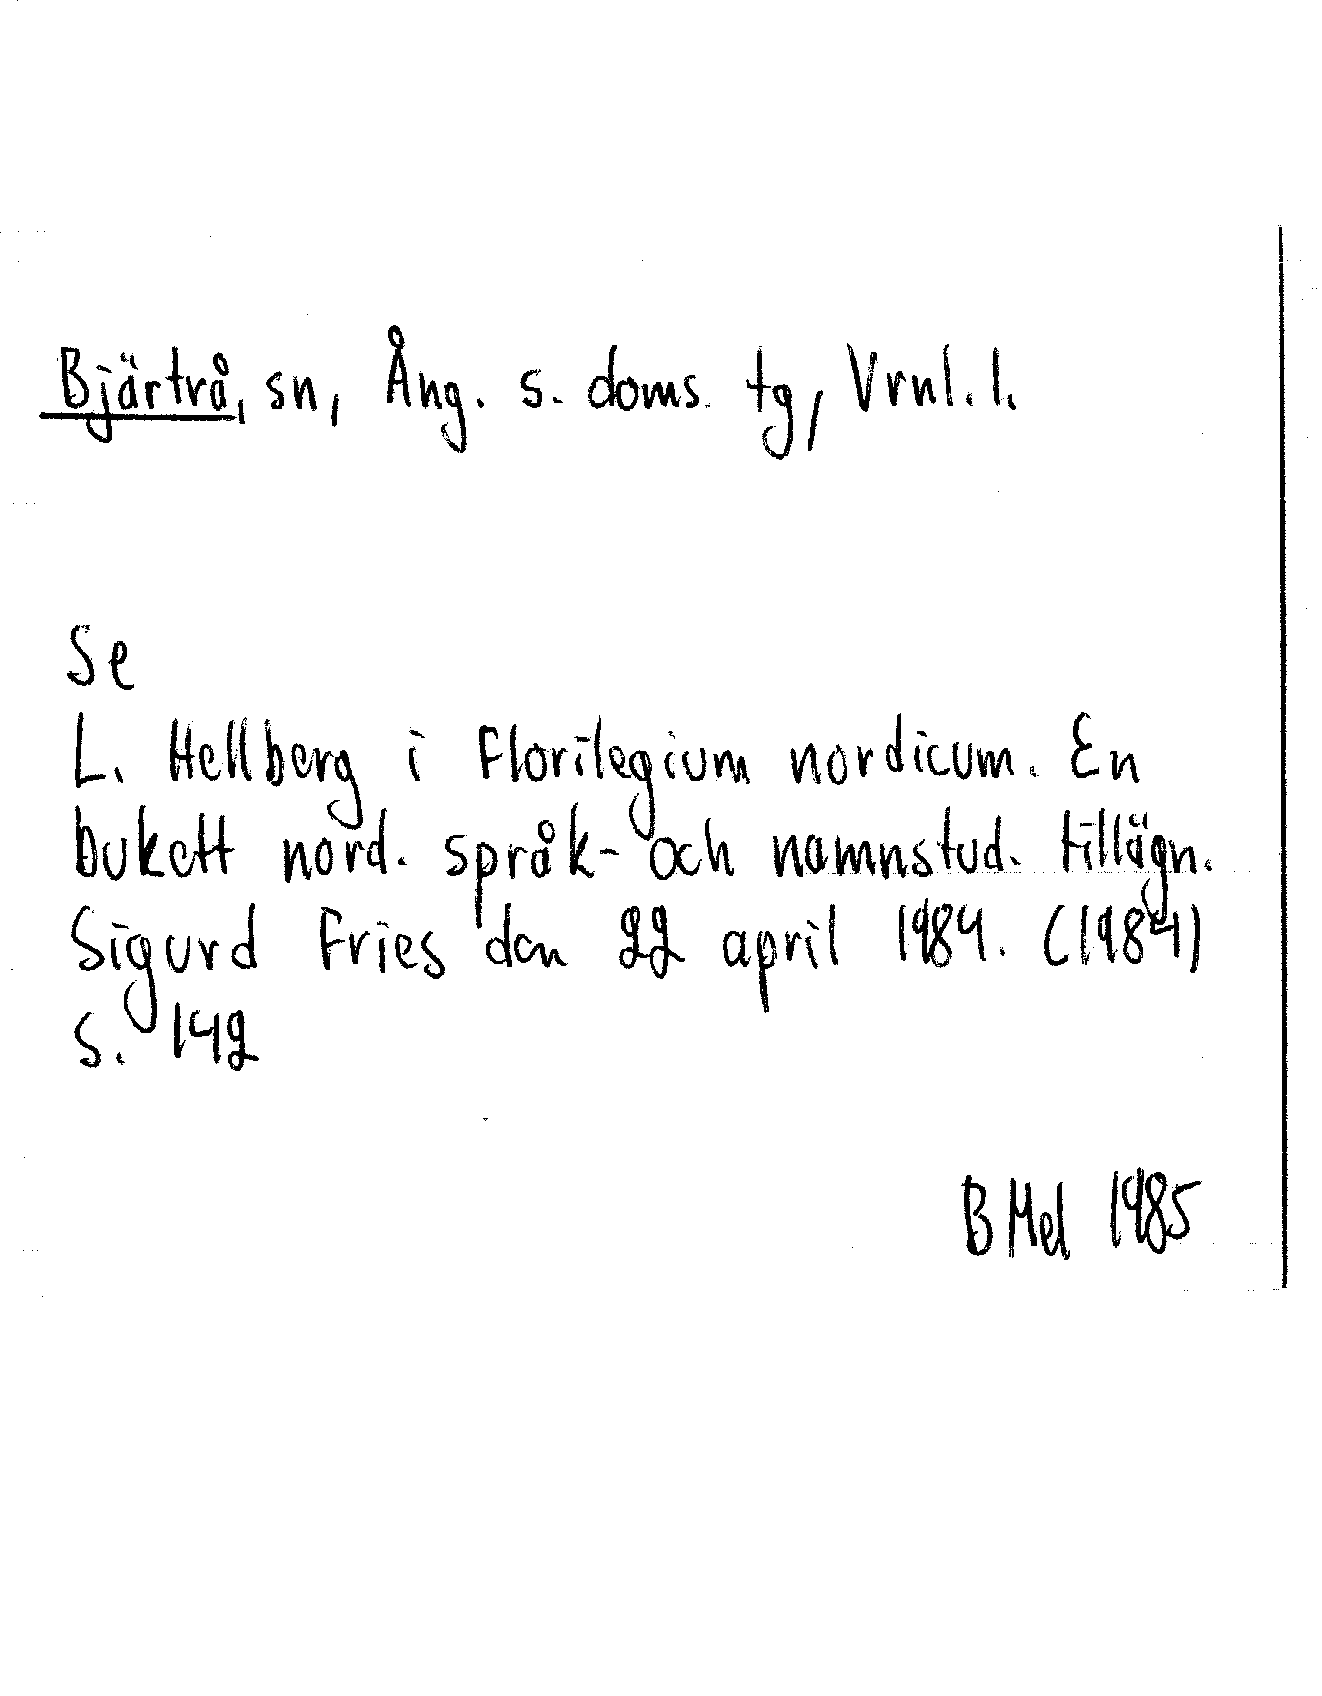 Bjärtrå, sn, Ång. s. doms. tg, Vrnl. l.
Se
L. Hellberg i Florilegium nordicum. En
bukett nord. språk- och namnstud. tillägn.
Sigurd Fries den 22 april 1984. (1984)
s. 142
B Mel 1985